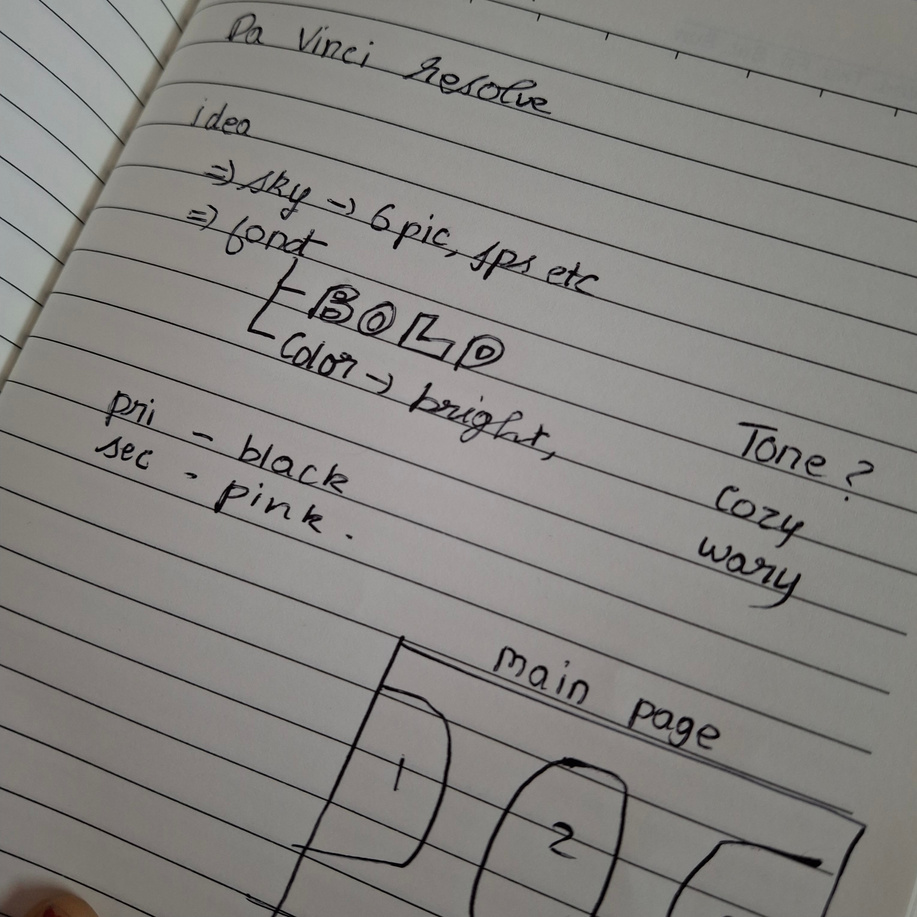 Da Vinci resolve
idea
=> sky -> 6 pic, sps etc
=> font
BOLD
Color -> bright,
pri - black
sec - pink.
Tone?
Cozy
wary
main page
1
2